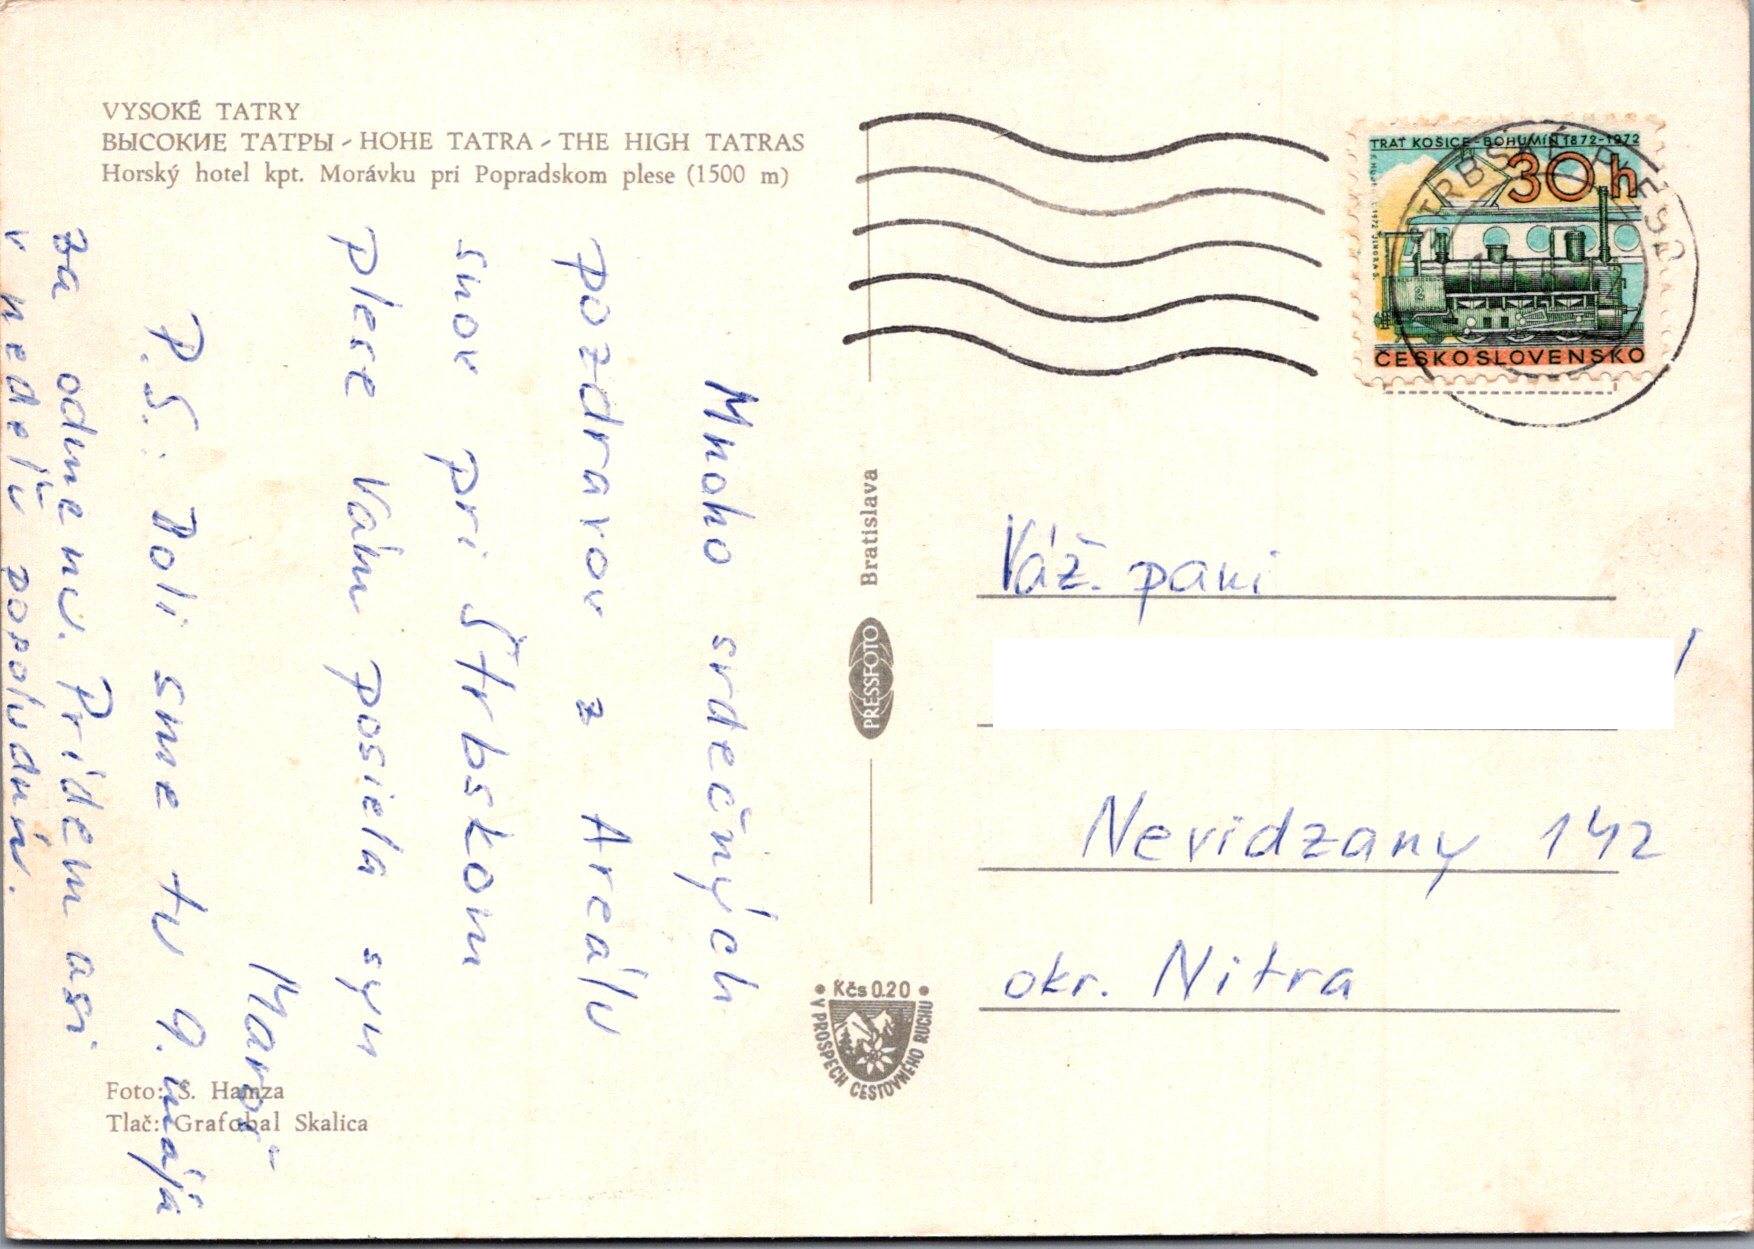 VYSOKÉ TATRY
ВЫСОКИЕ ТАТРЫ - HOHE TATRA - THE HIGH TATRAS
Horský hotel kpt. Morávku pri Popradskom plese (1500 m)
Mnoho srdečných
pozdravov z Areálu
snov pri Štrbskom
plese Vám posiela syn
Maroš
P.S.: Boli sme tu 9. mája
za odmenu. Prídem asi
v nedeľu popoludní.
Foto: S. Hamza
Tlač: Grafobal Skalica
Bratislava
PRESSFOTO
Kčs 0.20
V PROSPECH CESTOVNÉHO RUCHU
TRAŤ KOŠICE-BOHUMÍN 1872-1972
30 h
ČESKOSLOVENSKO
ŠTRBSKÉ PLESO
Váž. pani
Nevidzany 142
okr. Nitra